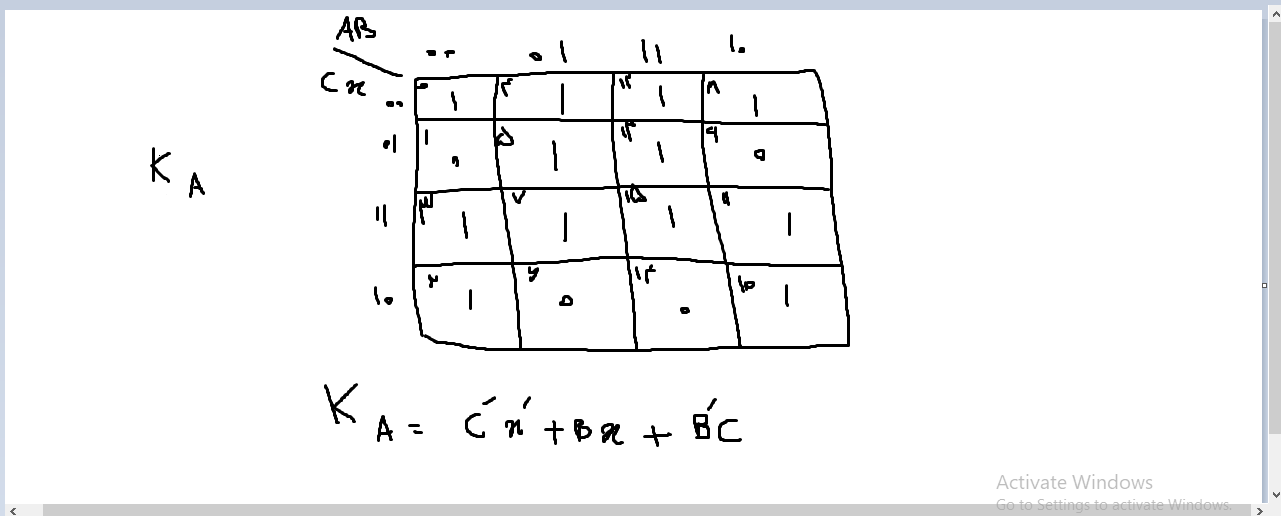 AB
Cx
.. .1 11 1.
.. ۰ 1 ۴ 1 ۱۲ 1 ۸ 1
.1 ۱ . ۵ 1 ۱۳ 1 ۹ 0
11 ۳ 1 ۷ 1 ۱۵ 1 ۱۱ 1
1. ۲ 1 ۶ 0 ۱۴ 0 ۱۰ 1
K A
K A = C′x′ + Bx + B′C
Activate Windows
Go to Settings to activate Windows.